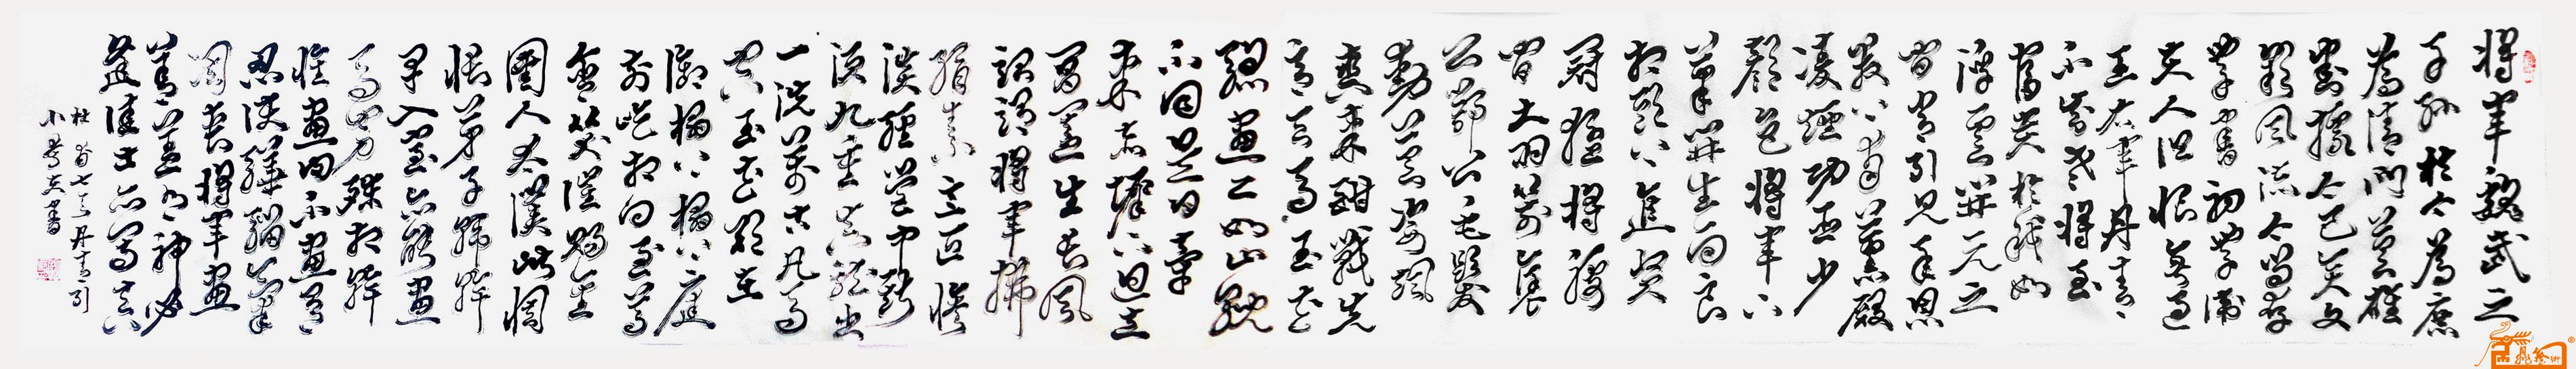 將軍魏武之
子孫於今為庶
為清門英雄
割據今已矣文
彩風流今尚存
學書初學衛
夫人但恨無過
王右軍丹青
不知老將至
富貴於我如
浮雲開元之
中常引見承恩
數上南薰殿
凌煙功臣少
顏色將軍下
筆開生面良
相頭上進賢
冠猛將腰
間大羽箭褒
公鄂公毛髮
動英姿颯
爽來酣戰先
帝天馬玉花
驄畫工如山貌
不同是日牽
來赤墀下迥立
閶闔生長風
詔謂將軍拂
絹素意匠慘
淡經營中斯
須九重真龍出
一洗萬古凡馬
空玉花卻在
御榻上榻上庭
前屹相向至尊
含笑催賜金
圉人太僕皆惆
悵弟子韓幹
早入室亦能畫
馬窮殊相幹
惟畫肉不畫骨
忍使驊騮氣
凋喪將軍畫
善蓋有神必
逢佳士亦寫真
杜甫七言丹青引
書